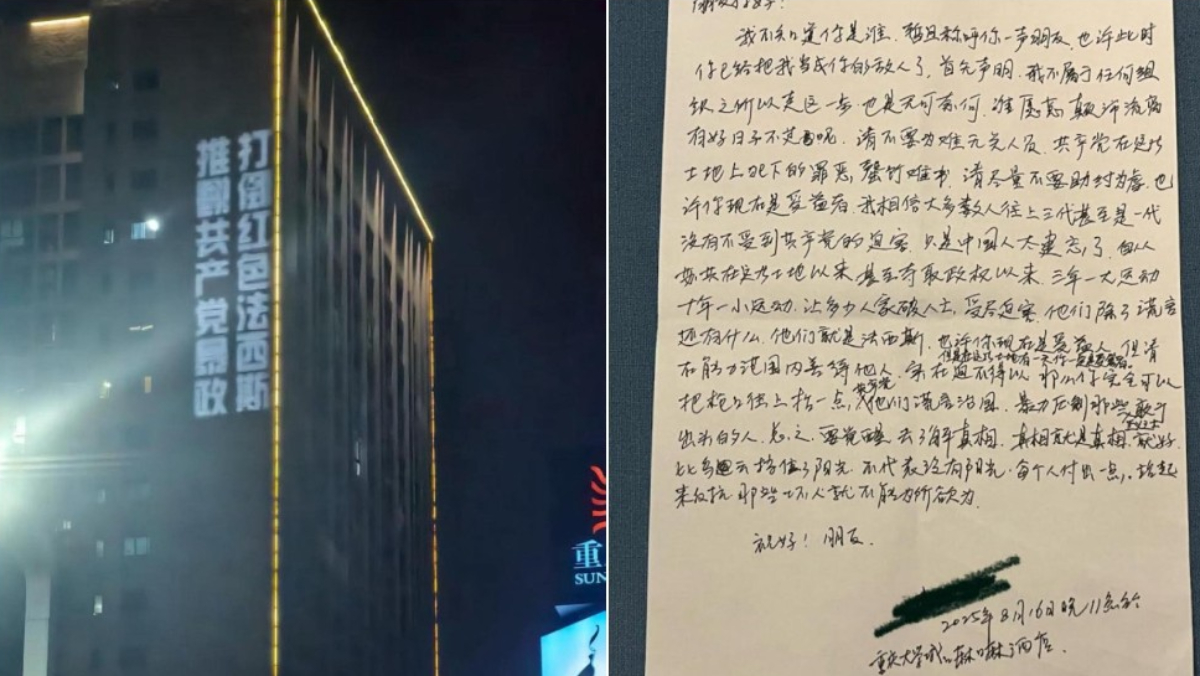 打倒红色法西斯
推翻共产党暴政
重
SUN
你好!
我不知道你是谁,暂且称呼你一声朋友,也许此时
你已经把我当成你的敌人了,首先声明,我不属于任何组
织之所以走这一步也是无可奈何,谁愿意颠沛流离
有好日子不过呢,请不要为难无关人员,共产党在这片
土地上犯下的罪恶,罄竹难书,请尽量不要助纣为虐,也
许你现在是受益者,我相信大多数人往上三代甚至是一代
没有不受到共产党的迫害,只是中国人太健忘了,自从
共在这片土地以来甚至夺取政权以来,三年一大运动
十年一小运动,让多少人家破人亡,受尽迫害,他们除了谎言
还有什么,他们就是法西斯,也许你现在是受益人,但请
但是在这片土地有一天你一定是受害者
在能力范围内善待他人,实在迫不得以,那么你完全可以
共产党
把枪口往上抬一点,他们谎言治国,暴力压制那些敢于
出头的人,总之,要觉醒,去了解真相,真相就是真相,就好
比乌云挡住了阳光,不代表没有阳光,每个人付出一点,站起
来反抗那些坏人就不能为所欲为
祝好!朋友.
2025年8月16日晚11点於
重庆大学城 酒店.